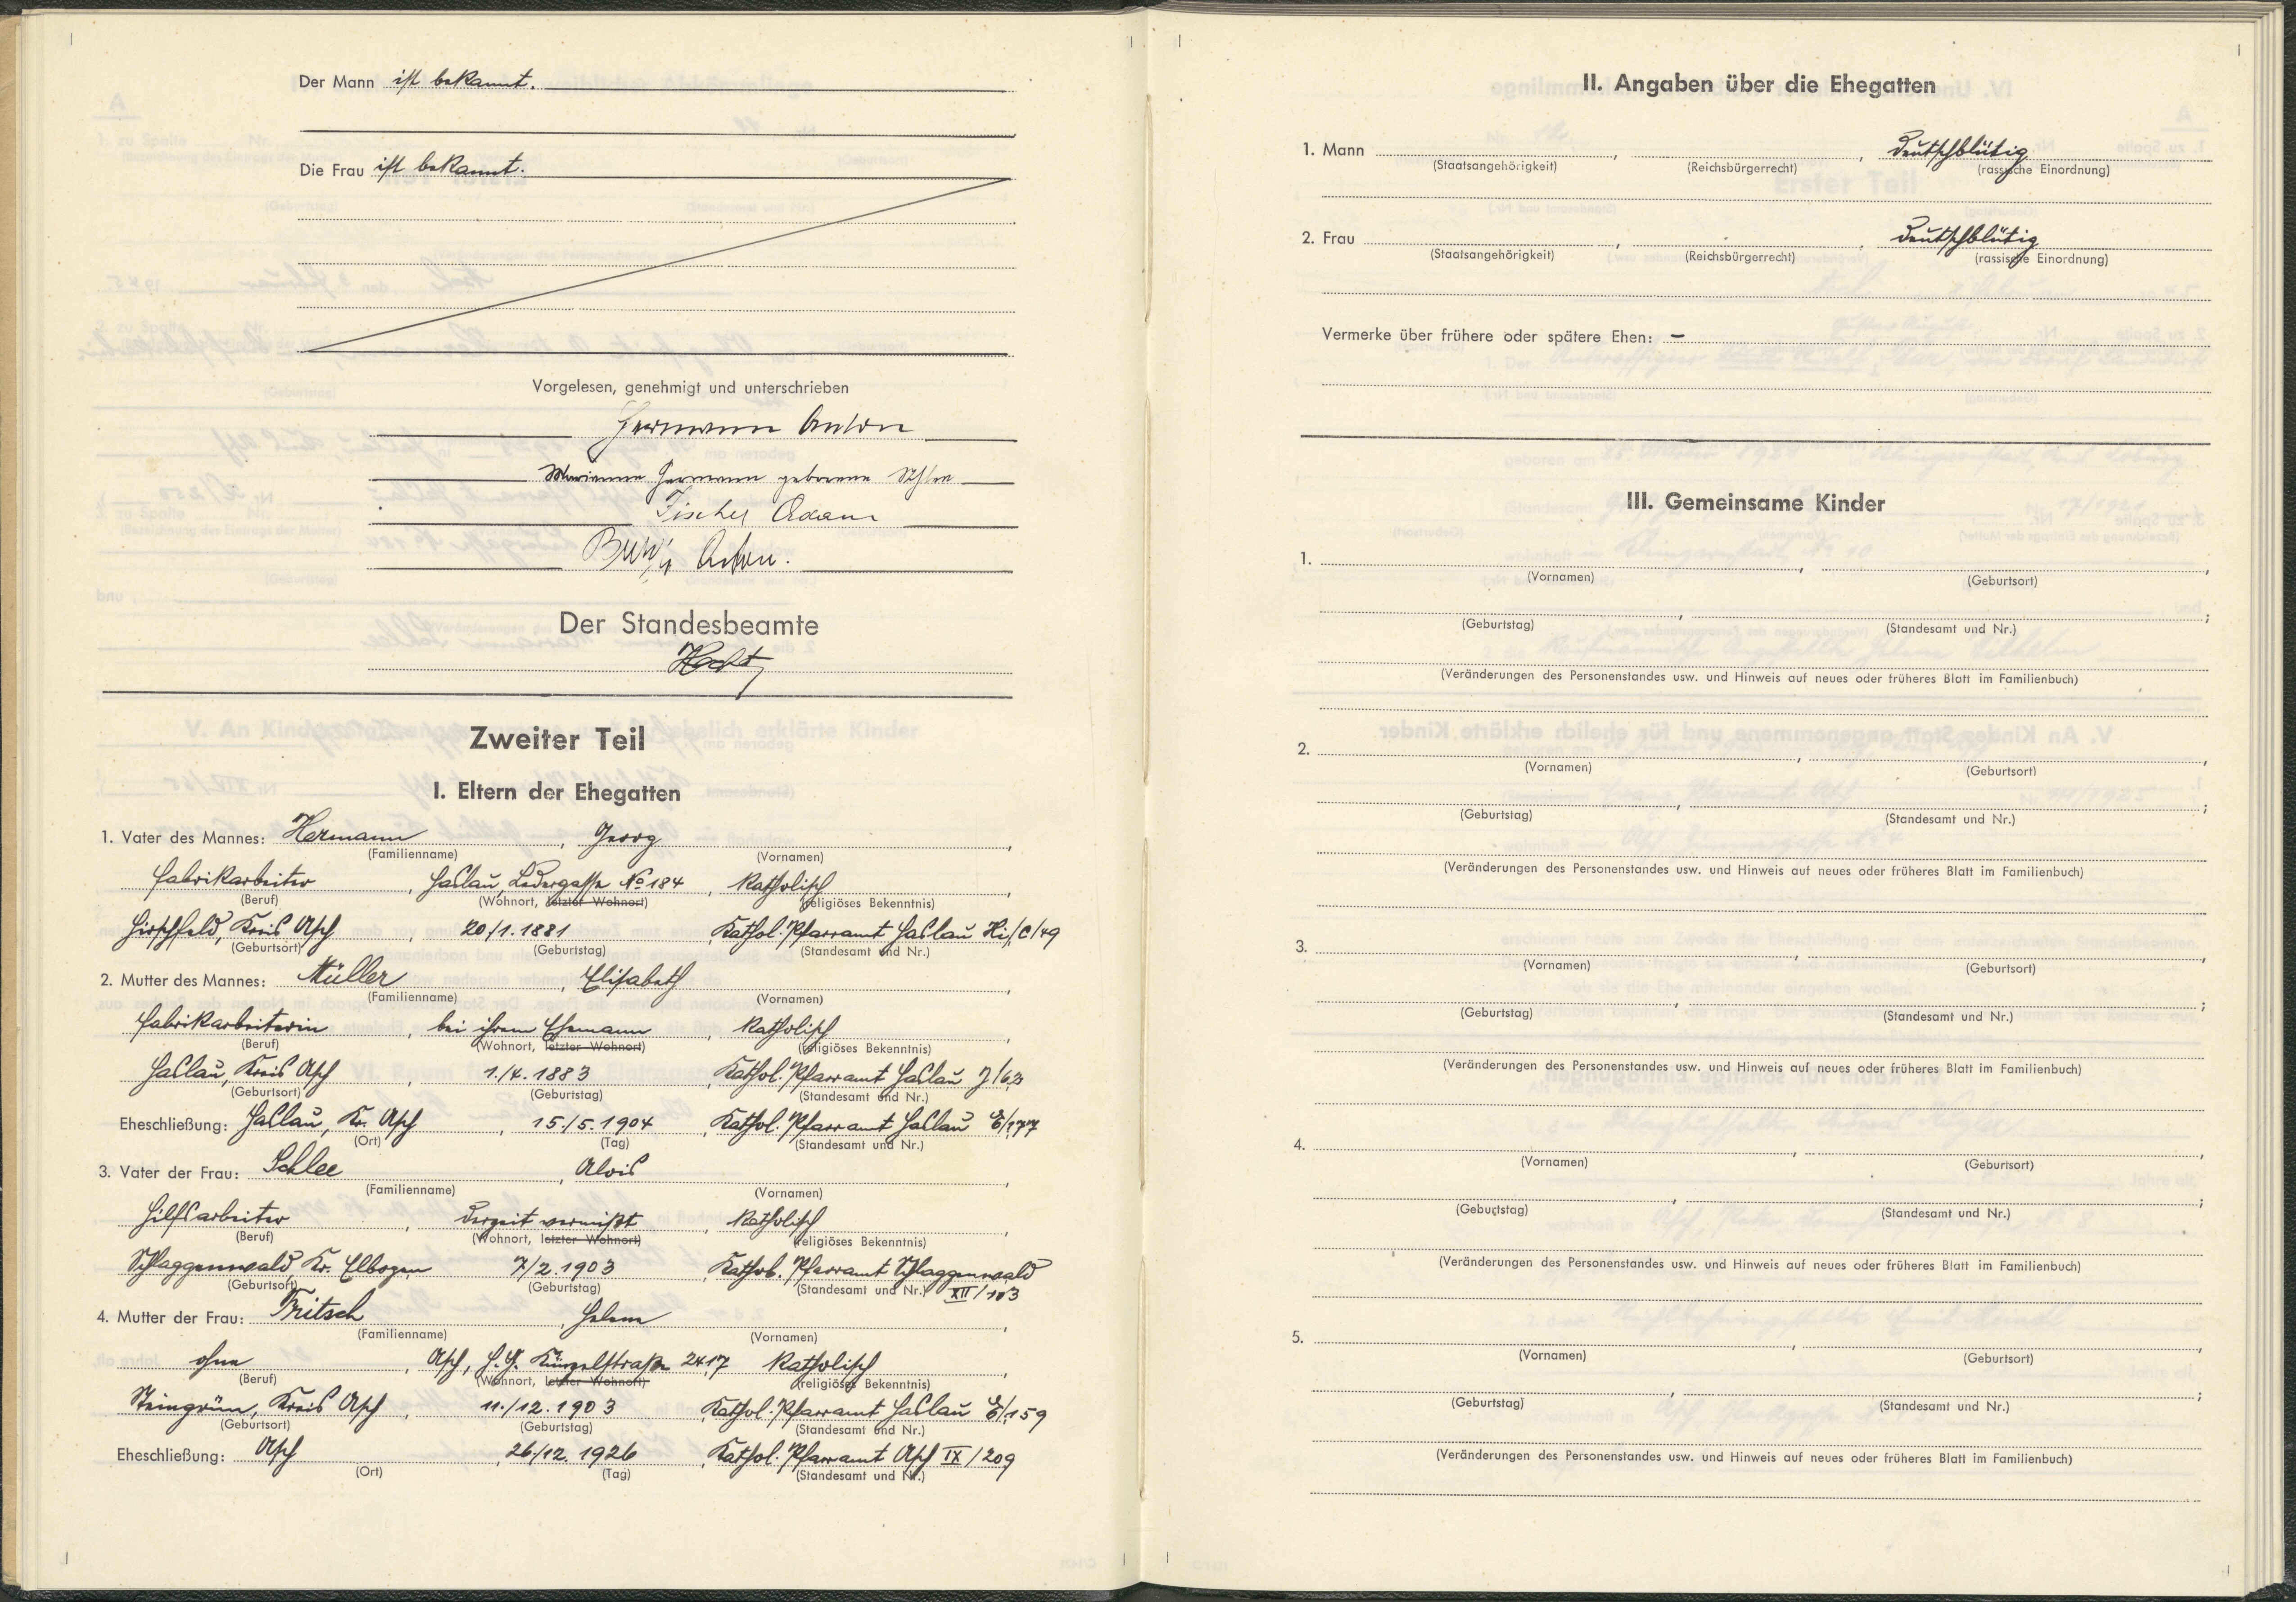 Der Mann ist bekannt.
Die Frau ist bekannt.
Vorgelesen, genehmigt und unterschrieben
Hermann Anton
Marianne Hermann geborene Schlee
Fischer Adam
Anton.
Der Standesbeamte
Zweiter Teil
I. Eltern der Ehegatten
1. Vater des Mannes: Hermann, Georg,
(Familienname) (Vornamen)
Fabrikarbeiter, Haslau, Ledergasse No 184, katholisch,
(Beruf) (Wohnort, letzter Wohnort) (religiöses Bekenntnis)
Hirschfeld, Kreis Asch, 20/1.1881 Kathol. Pfarramt Haslau Hi/C/49
(Geburtsort) (Geburtstag) (Standesamt und Nr.)
2. Mutter des Mannes: Müller, Elisabeth,
(Familienname) (Vornamen)
Fabrikarbeiterin, bei ihrem Ehemann, katholisch,
(Beruf) (Wohnort, letzter Wohnort) (religiöses Bekenntnis)
Haslau, Kreis Asch, 1./4.1883, Kathol. Pfarramt Haslau J/63
(Geburtsort) (Geburtstag) (Standesamt und Nr.)
Eheschließung: Haslau, Kr. Asch, 15./5.1904, Kathol. Pfarramt Haslau E/177
(Ort) (Tag) (Standesamt und Nr.)
3. Vater der Frau: Schlee, Alois,
(Familienname) (Vornamen)
Hilfsarbeiter, derzeit vermißt, katholisch,
(Beruf) (Wohnort, letzter Wohnort) (religiöses Bekenntnis)
Schlaggenwald, Kr. Elbogen 7/2.1903 Kathol. Pfarramt Schlaggenwald
(Geburtsort) (Geburtstag) (Standesamt und Nr.) XII/103
4. Mutter der Frau: Fritsch, Helene,
(Familienname) (Vornamen)
ohne, Asch, Künzelstraße 2417 katholisch,
(Beruf) (Wohnort, letzter Wohnort) (religiöses Bekenntnis)
Steingrün, Kreis Asch, 11./12.1903, Kathol. Pfarramt Haslau E/159
(Geburtsort) (Geburtstag) (Standesamt und Nr.)
Eheschließung: Asch, 26./12.1926, Kathol. Pfarramt Asch IX/209
(Ort) (Tag) (Standesamt und Nr.)
II. Angaben über die Ehegatten
1. Mann , , deutschblütig
(Staatsangehörigkeit) (Reichsbürgerrecht) (rassische Einordnung)
2. Frau , , deutschblütig
(Staatsangehörigkeit) (Reichsbürgerrecht) (rassische Einordnung)
Vermerke über frühere oder spätere Ehen: –
III. Gemeinsame Kinder
1. , ,
(Vornamen) (Geburtsort)
, ;
(Geburtstag) (Standesamt und Nr.)
(Veränderungen des Personenstandes usw. und Hinweis auf neues oder früheres Blatt im Familienbuch)
2. , ,
(Vornamen) (Geburtsort)
, ;
(Geburtstag) (Standesamt und Nr.)
(Veränderungen des Personenstandes usw. und Hinweis auf neues oder früheres Blatt im Familienbuch)
3. , ,
(Vornamen) (Geburtsort)
, ;
(Geburtstag) (Standesamt und Nr.)
(Veränderungen des Personenstandes usw. und Hinweis auf neues oder früheres Blatt im Familienbuch)
4. , ,
(Vornamen) (Geburtsort)
, ;
(Geburtstag) (Standesamt und Nr.)
(Veränderungen des Personenstandes usw. und Hinweis auf neues oder früheres Blatt im Familienbuch)
5. , ,
(Vornamen) (Geburtsort)
, ;
(Geburtstag) (Standesamt und Nr.)
(Veränderungen des Personenstandes usw. und Hinweis auf neues oder früheres Blatt im Familienbuch)